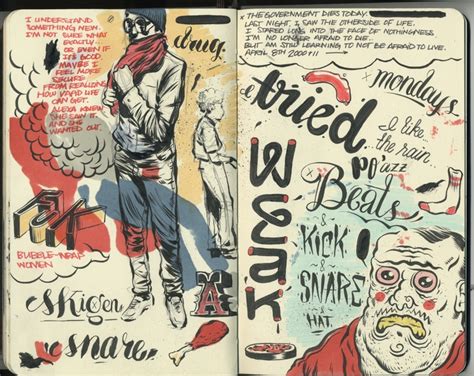 I UNDERSTAND
SOMETHING NEW.
I'M NOT SURE WHAT
EXACTLY.
OR EVEN IF
IT'S GOOD.
MAYBE I
FEEL MORE
SECURE
FROM REALIZING
HOW VAPID LIFE
CAN GET.
ALEXA KNEW
SHE SAW IT.
AND SHE
WANTED OUT.
BUBBLE-WRAP
WOMEN
A
snare
*THE GOVERNMENT DIES TODAY.
LAST NIGHT, I SAW THE OTHERSIDE OF LIFE.
I STARED LONG INTO THE FACE OF NOTHINGNESS.
I'M NO LONGER AFRAID TO DIE.
BUT AM STILL LEARNING TO NOT BE AFRAID TO LIVE.
APRIL 8TH 2009
mondays
I tried
I like
the rain
WEAK
PO'AZZ
Beats
&
KICK
&
SNARE
&
HAT.